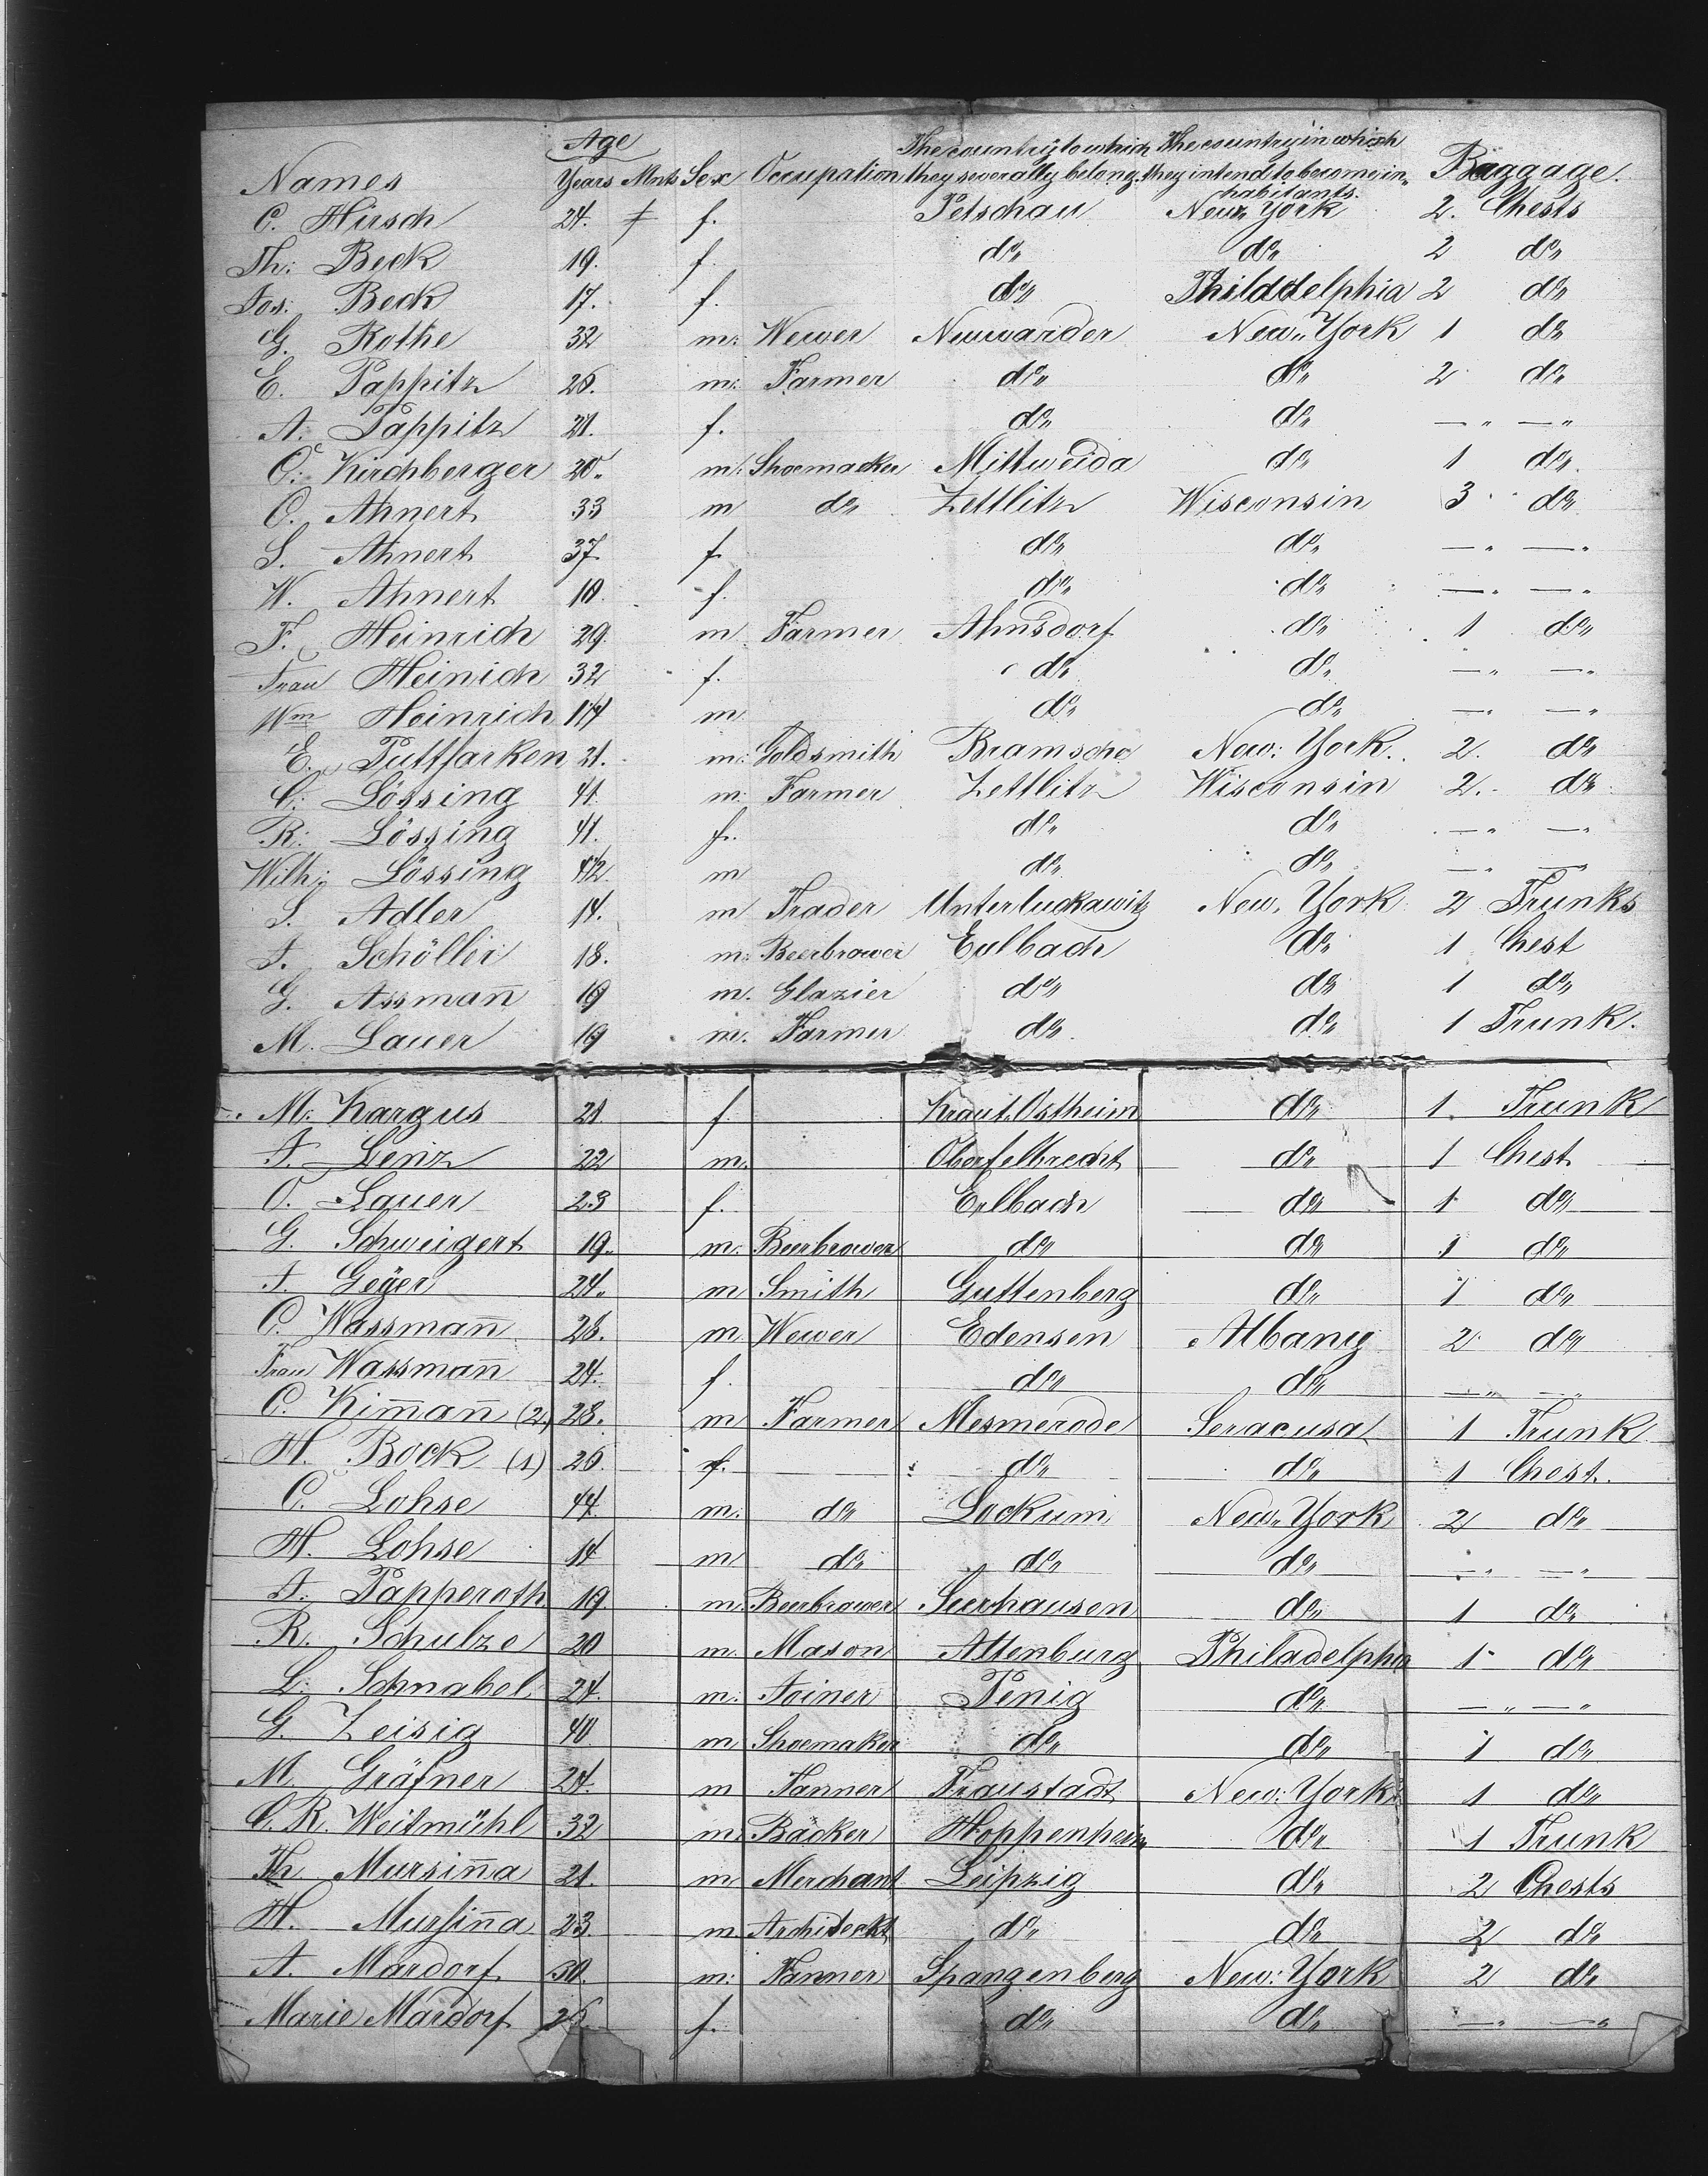 Names Age Years Mnts Sex Occupation The country to which they severally belong. The country in which they intend to become in„habitants. Baggage.
C. Hirsch 24. f. Petschau New York 2. Chests
Th: Beck 19. f. do„ do„ 2 do„
Jos: Beck 17. f. do„ Philadelphia 2 do„
G. Rothe 32 m: Wewer Neuwarder New„ York 1 do„
E. Pappitz 26. m: Farmer do„ do„ 2 do„
A. Pappitz 21. f. do„ do„ — „ — „
C: Kirchberger 20„ m: Shoemacker Mittweida do„ 1 do„
C. Ahnert 33 m do„ Zettlitz Wisconsin 3 do„
S. Ahnert 37 f. do„ do„ — „ — „
W. Ahnert 10. f. do„ do„ — „ — „
F. Heinrich 29. m Farmer Ahnsdorf do„ 1 do„
Frau Heinich 32 f. do„ do„ — „ — „
Wm Heinrich m. do„ do„ — „ — „
E. Puttfarken 21. m: Goldsmith Bramsche New: York. 2. do„
C: Lössing 41. m: Farmer Zettlitz Wisconsin 2. do„
R: Lössing 41. f. do„ do„ — „ — „
Wilh: Lössing m do„ do„ — „ — „
S. Adler 14. m Trader Unterluckawitz New, York 2 Trunks
J. Schöller 18. m: Beerbrower Eulbach do„ 1 Chest
G. Assman̄ 19 m. Glazier do„ do„ 1 do„
M. Lauer 19 m. Farmer do„ do„ 1 Trunk.
M: Kargus 21. f. Kraut, Ostheim do„ 1. Trunk
J. Lenz 22 m. Oberfelbrecht do„ 1 Chest
O. Lauer 23 f. Erlbach do„ 1 do„
G. Schweigert 19„ m: Beerbrower do„ do„ 1 do„
J. Geÿer 24„ m Smith Guttenberg do„ 1 do„
C. Wassman̄ 28. m Wewer Edensen Albany 2 do„
Frau Wassman̄ 24. f. do„ do„ — „ — „
C. Kim̄an̄ (2) 28. m Farmer Mesmerode Seracusa 1 Trunk
H. Bock (1) 26 f. do„ do„ 1 Chest.
C. Lohse 44. m: do„ Lockum New„ York 2 do„
H. Lohse 14 m do„ do„ do„ — „ — „
J. Papperoth 19. m. Beerbrower Seerhausen do„ 1 do„
R. Schulze 20 m. Mason Altenburg Philadelphia 1 do„
L. Schnabel 24. m: Joiner Penig do„ — „ — „
G. Zeisig 40. m Shoemaker do„ do„ 1 do„
M. Gräfner 24. m Tanner Fraustadt New: York 1 do„
C. R. Weitmühl 32 m: Bäcker Hoppenheim do„ 1 Trunk
Th Mursin̄a 21. m Merchant Leipzig do„ 2 Chests
H. Mursin̄a 23. m. Architeckt do„ do„ 2 do„
A. Mardorf 30. m: Tanner Spangenberg New: York 2 do„
Marie Mardorf f. do„ do„ — „ — „